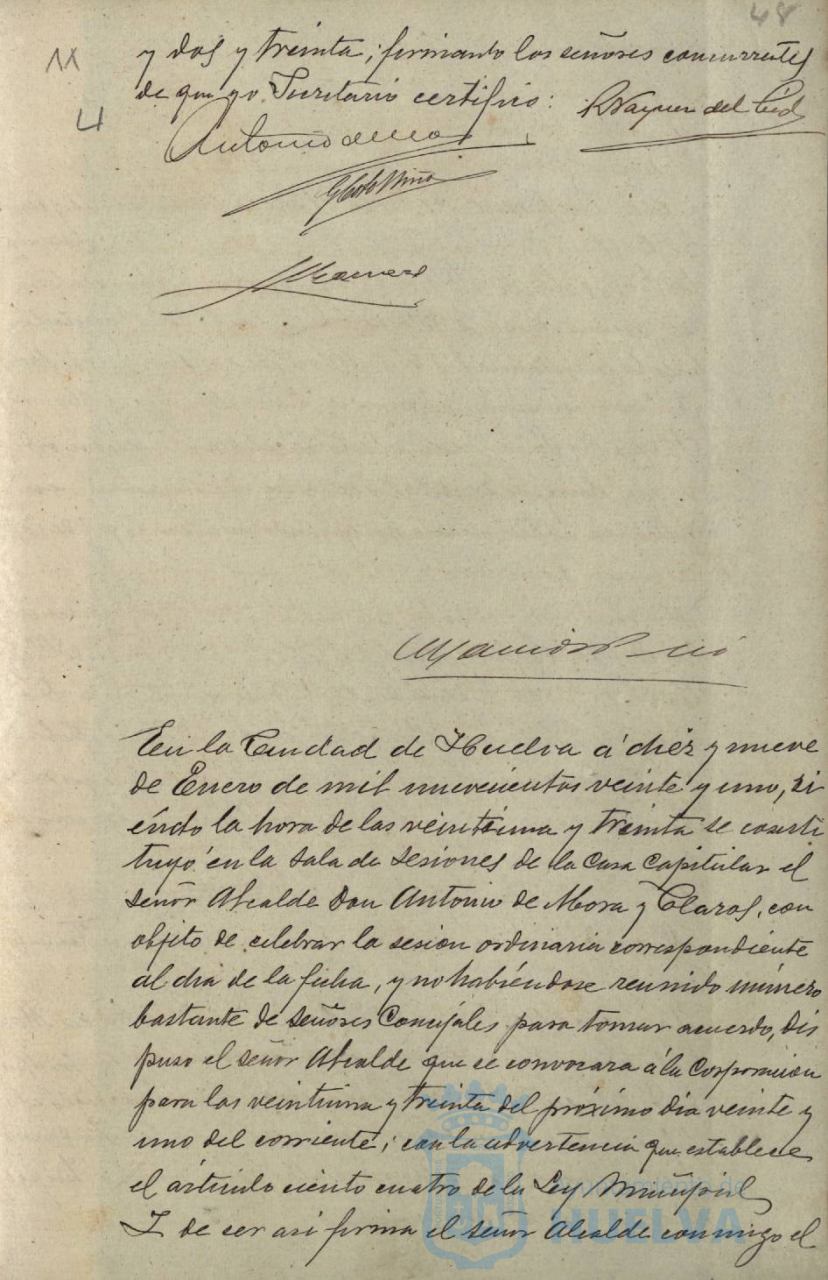 48
y dos y treinta; firmando los señores concurrentes
de que yo Secretario certifico:
Antonio de Mora
En la Ciudad de Huelva á diéz y nueve
de Enero de mil novecientos veinte y uno, si
éndo la hora de las veintiuna y treinta se consti
tuyó en la Sala de Sesiones de la Casa Capitular el
Señor Alcalde Don Antonio de Mora y Claros, con
objeto de celebrar la sesión ordinaria correspondiente
al dia de la fecha, y no habiéndose reunido número
bastante de señores Concejales para tomar acuerdo, dis
puso el Señor Alcalde que se convocara á la Corporación
para las veintiuna y treinta del próximo dia veinte y
uno del corriente; con la advertencia que establece
el artículo ciento cuatro de la Ley Municipal
Y de ser asi firma el Señor Alcalde conmigo el
HUELVA